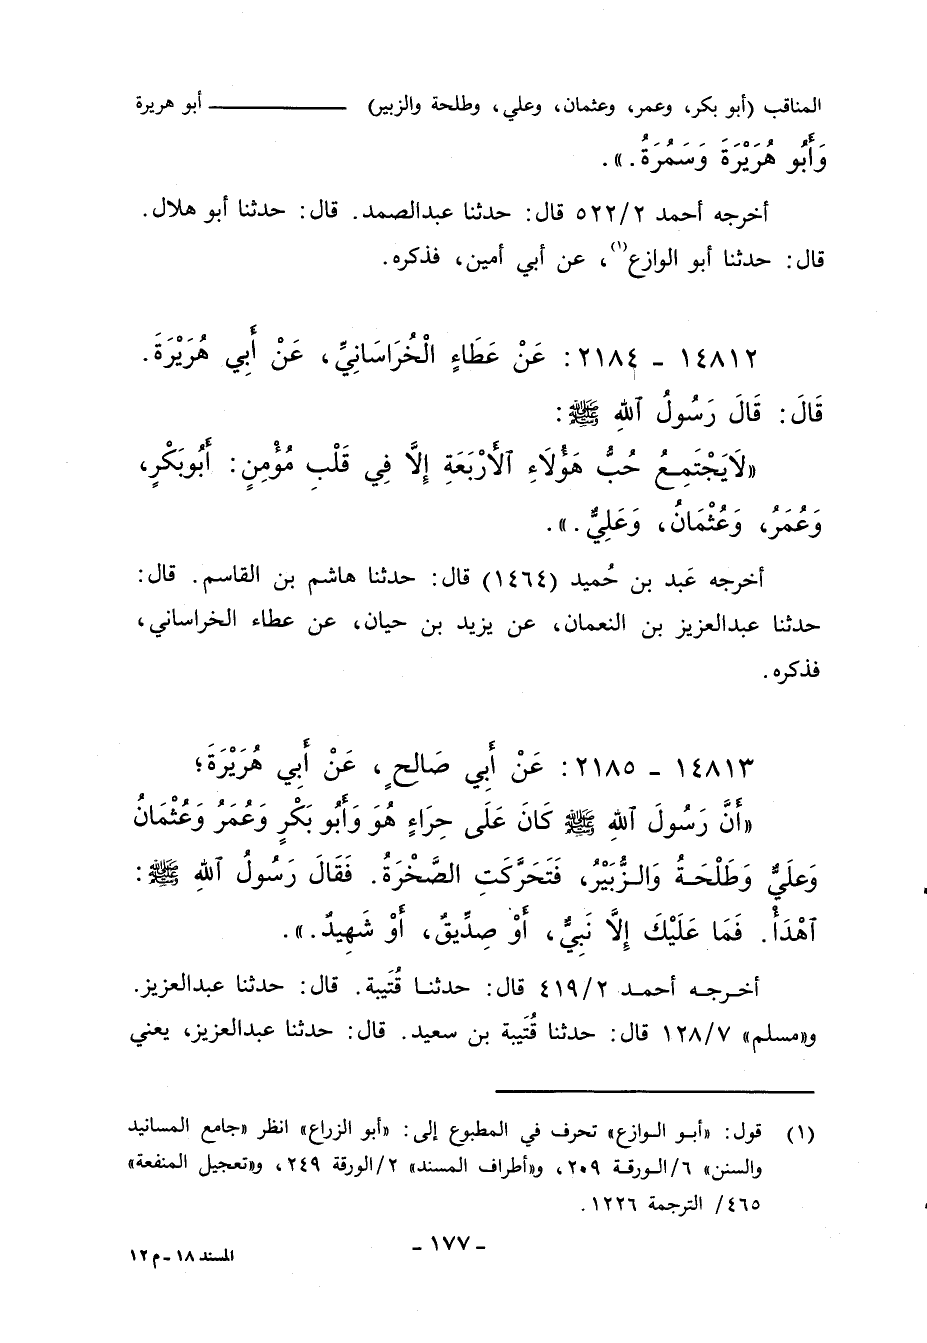 المناقب (أبو بكر، وعمر، وعثمان، وعلي، وطلحة والزبير) ــــــــــــــ أبو هريرة
وَأَبُو هُرَيْرَةَ وَسَمُرَةُ.».
أخرجه أحمد ٥٢٢/٢ قال: حدثنا عبدالصمد. قال: حدثنا أبو هلال.
قال: حدثنا أبو الوازع(١)، عن أبي أمين، فذكره.
١٤٨١٢ - ٢١٨٤: عَنْ عَطَاءٍ الْخُرَاسَانِيِّ، عَنْ أَبِي هُرَيْرَةَ.
قَالَ: قَالَ رَسُولُ ٱللهِ ﷺ:
«لَايَجْتَمِعُ حُبُّ هَؤُلَاءِ ٱلْأَرْبَعَةِ إِلَّا فِي قَلْبِ مُؤْمِنٍ: أَبُوبَكْرٍ،
وَعُمَرُ، وَعُثْمَانُ، وَعَلِيٌّ.».
أخرجه عَبد بن حُميد (١٤٦٤) قال: حدثنا هاشم بن القاسم. قال:
حدثنا عبدالعزيز بن النعمان، عن يزيد بن حيان، عن عطاء الخراساني،
فذكره.
١٤٨١٣ - ٢١٨٥: عَنْ أَبِي صَالِحٍ، عَنْ أَبِي هُرَيْرَةَ؛
«أَنَّ رَسُولَ ٱللهِ ﷺ كَانَ عَلَى حِرَاءٍ هُوَ وَأَبُو بَكْرٍ وَعُمَرُ وَعُثْمَانُ
وَعَلَيٌّ وَطَلْحَةُ وَالزُّبَيْرُ، فَتَحَرَّكَتِ الصَّخْرَةُ. فَقَالَ رَسُولُ ٱللهِ ﷺ:
ٱهْدَأْ. فَمَا عَلَيْكَ إِلَّا نَبِيٌّ، أَوْ صِدِّيقٌ، أَوْ شَهِيدٌ.».
أخرجه أحمد ٤١٩/٢ قال: حدثنا قُتَيبة. قال: حدثنا عبدالعزيز.
و«مسلم» ١٢٨/٧ قال: حدثنا قُتَيبة بن سعيد. قال: حدثنا عبدالعزيز، يعني
(١) قول: «أبو الوازع» تحرف في المطبوع إلى: «أبو الزراع» انظر «جامع المسانيد
والسنن» ٦/الورقة ٢٠٩، و«أطراف المسند» ٢/الورقة ٢٤٩، و«تعجيل المنفعة»
٤٦٥/ الترجمة ١٢٢٦.
- ١٧٧ -
المسند ١٨ - م ١٢